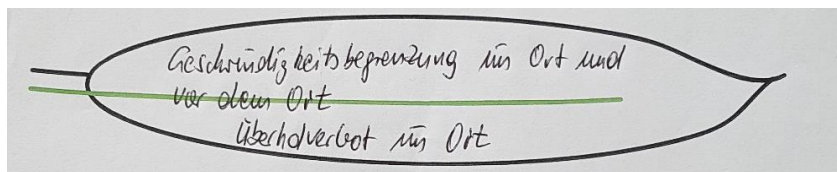 Geschwindigkeitsbegrenzung im Ort und
vor dem Ort
Überholverbot im Ort